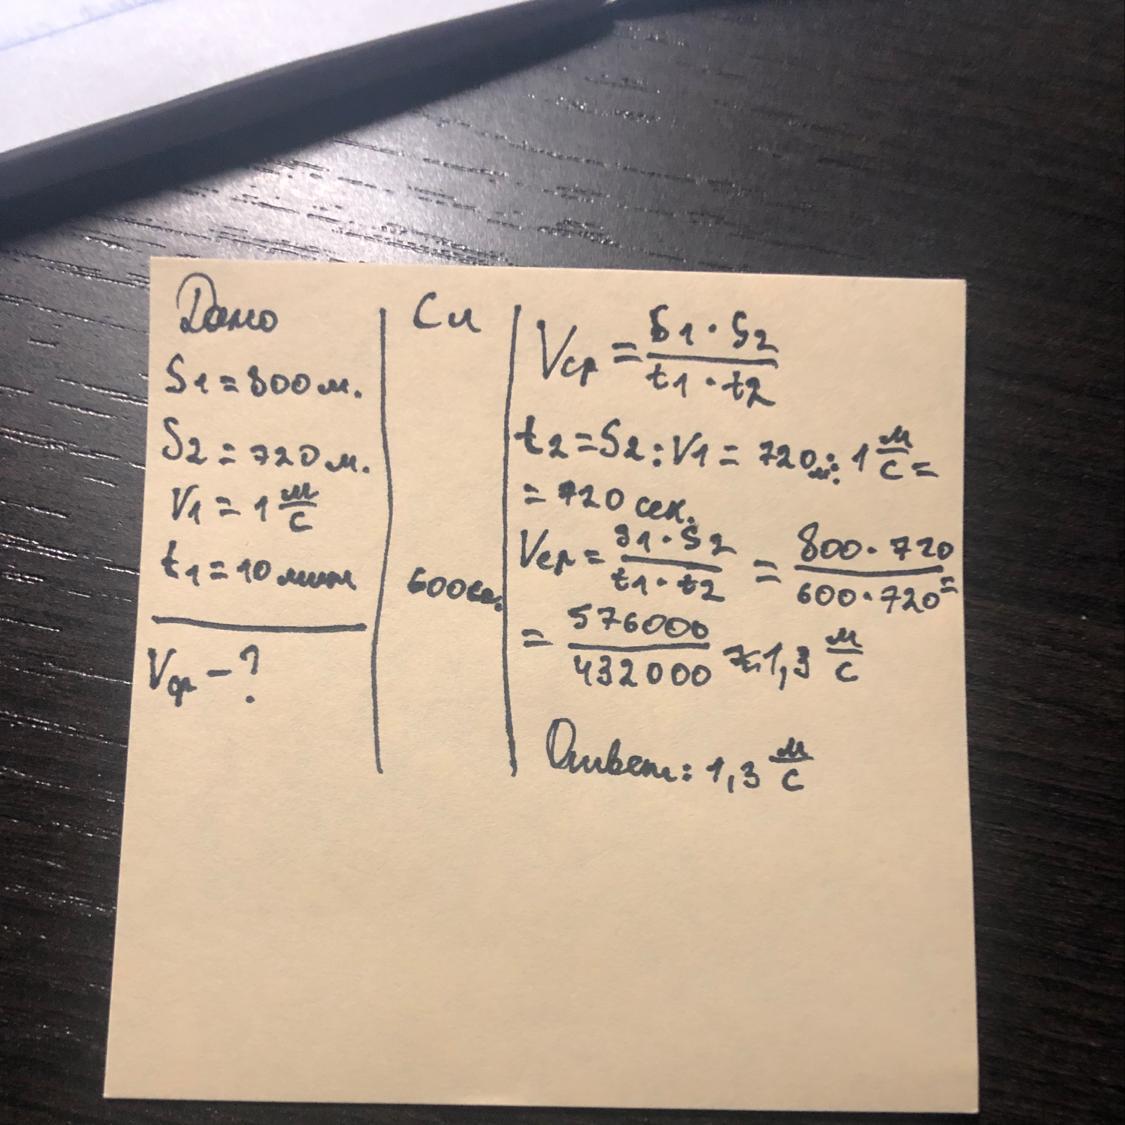 Дано
S1 = 800 м.
S2 = 720 м.
V1 = 1 м/с
t1 = 10 мин
Vср - ?
Си
600 сек.
Vср = S1 · S2 / t1 · t2
t2 = S2 : V1 = 720 м : 1 м/с =
= 720 сек.
Vср = S1 · S2 / t1 · t2 = 800 · 720 / 600 · 720 =
= 576000 / 432000 ≈ 1,3 м/с
Ответ: 1,3 м/с